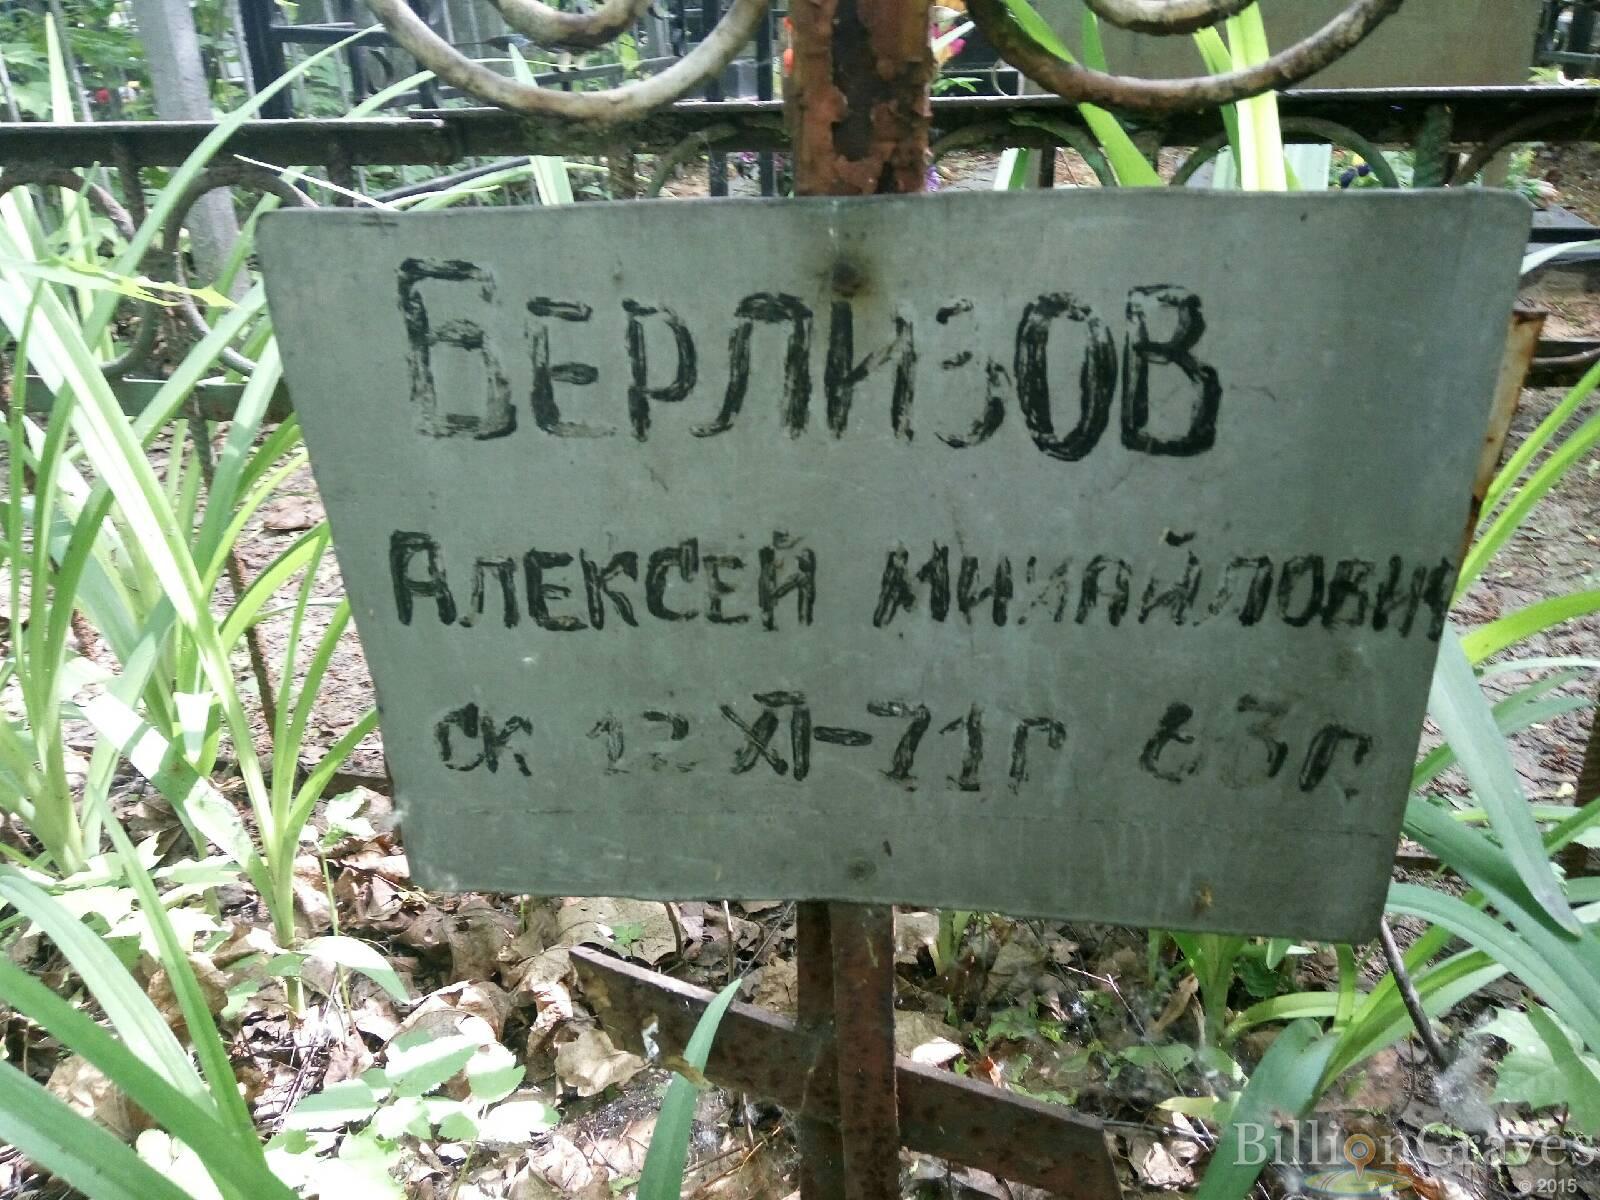 БЕРЛИЗОВ
АЛЕКСЕЙ МИХАЙЛОВИЧ
СК 12 XI-71г 63г.
BillionGraves
© 2015